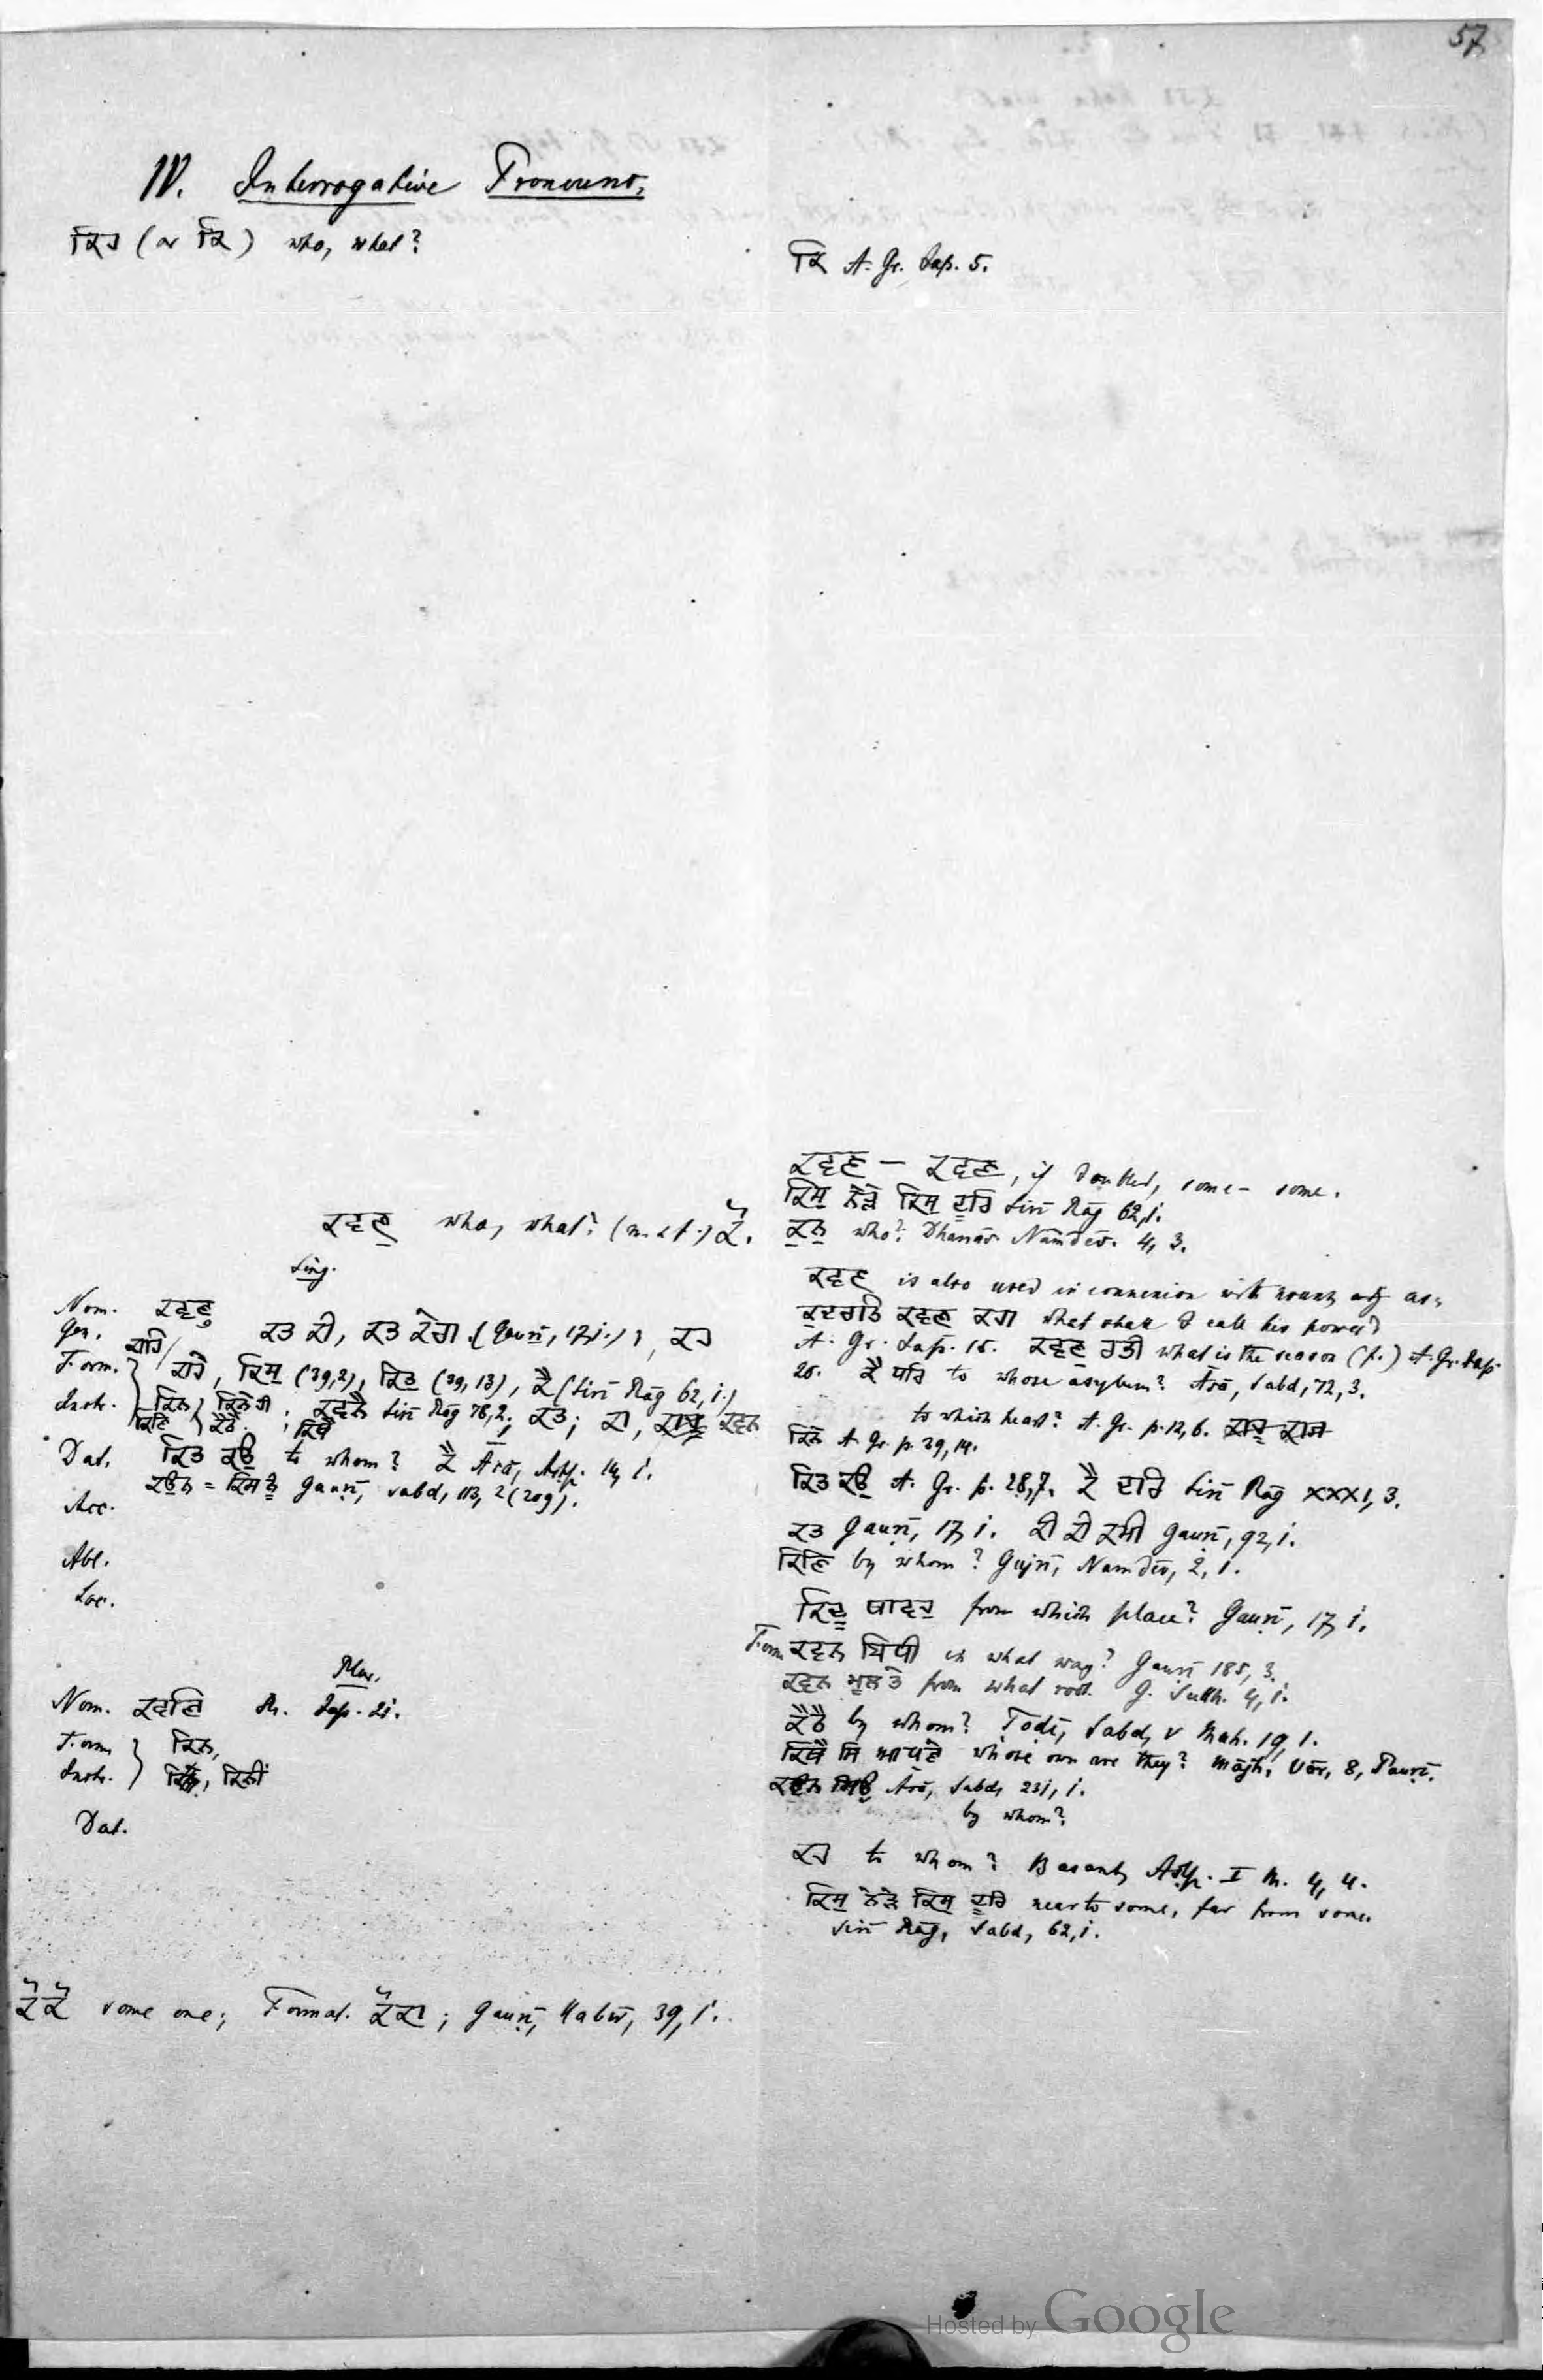 57
IV. Interrogative Pronouns.
ਕਿਹ (or ਕਿ) who, what?
ਕਵਣੁ who, what? (m. & f.) ਕੋ.
Sing.
Nom. ਕਵਣੁ
Gen. ਕਤ ਕੀ, ਕਤ ਕੇਰਾ (Gauṛī, 17,1.), ਕਹ
ਕਾਹਿ
Form. ਕਾਹੇ, ਕਿਸੁ (39,2), ਕਿਤੁ (39, 13), ਕੈ (Sirī Rāg 62, 1.)
Instr. ਕਿਨ, ਕਿਨੇਹੀ. ਕਵਨੈ Sirī Rāg 78,2; ਕਤ; ਕਾ, ਕਵਨ
ਕਿਣਿ
Dat. ਕਿਤ ਕਉ to whom? ਕੈ Āsā, Aṣṭp. 14, 1.
ਕਉਨ = ਕਿਸ ਨੂੰ Gauṛī, sabd, 113, 2 (209).
Acc.
Abl.
Loc.
Plur.
Nom. ਕਵਣਿ Sh. Jap. 21.
Form. ਕਿਨ,
Instr. ਕਿਨੀਂ
Dat.
ਕੋਕੋ some one; Format. ਕੋਕਾ; Gauṛī, Kabīr, 39, 1.
ਕਿ A. Gr. Jap. 5.
ਕਵਣ — ਕਵਣ, if doubled, some — some.
ਕਿਸੁ ਨੇੜੇ ਕਿਸੁ ਦੂਰਿ Sirī Rāg 62,1.
ਕੁਨੁ who? Dhanās. Nāmdēv. 4, 3.
ਕਵਣ is also used in connexion with nouns adj as:
ਕੁਦਰਤਿ ਕਵਣ ਕਹਾ what shall I call his power?
A. Gr. Jap. 16. ਕਵਣੁ ਰੁਤੀ what is the season (f.) A. Gr. Jap.
20. ਕੈ ਪਹਿ to whose asylum? Āsā, Sabd, 72, 3.
to which heart? A. Gr. p. 12, 6.
ਕਿਨੇ A. Gr. p. 39, 14.
ਕਿਤ ਕਉ A. Gr. p. 28,7. ਕੈ ਦਰਿ Sirī Rāg XXXI, 3.
ਕਤ Gauṛī, 17, 1. ਕੀ ਕੀ ਕਮੀ Gauṛī, 92, 1.
ਕਿਣਿ by whom? Gujrī, Namdēv, 2, 1.
ਕਿਦੂ ਥਾਵਹੁ from which place? Gauṛī, 17, 1.
Form. ਕਵਨ ਬਿਧੀ in what way? Gauṛī 185, 3.
ਕਵਨ ਮੂਲ ਤੇ from what root. G. Sukh. 4, 1.
by whom? Tōdī, Sabd, V Mah. 19, 1.
whose own are they? Mājh, Vār, 8, Pauṛī.
Āsā, Sabd, 231, 1.
by whom?
ਕਹ to whom? Basant, Aṣṭp. I M. 4, 4.
ਕਿਸੁ ਨੇੜੇ ਕਿਸੁ ਦੂਰਿ near to some, far from some.
Sirī Rāg, Sabd, 62, 1.
Hosted by Google